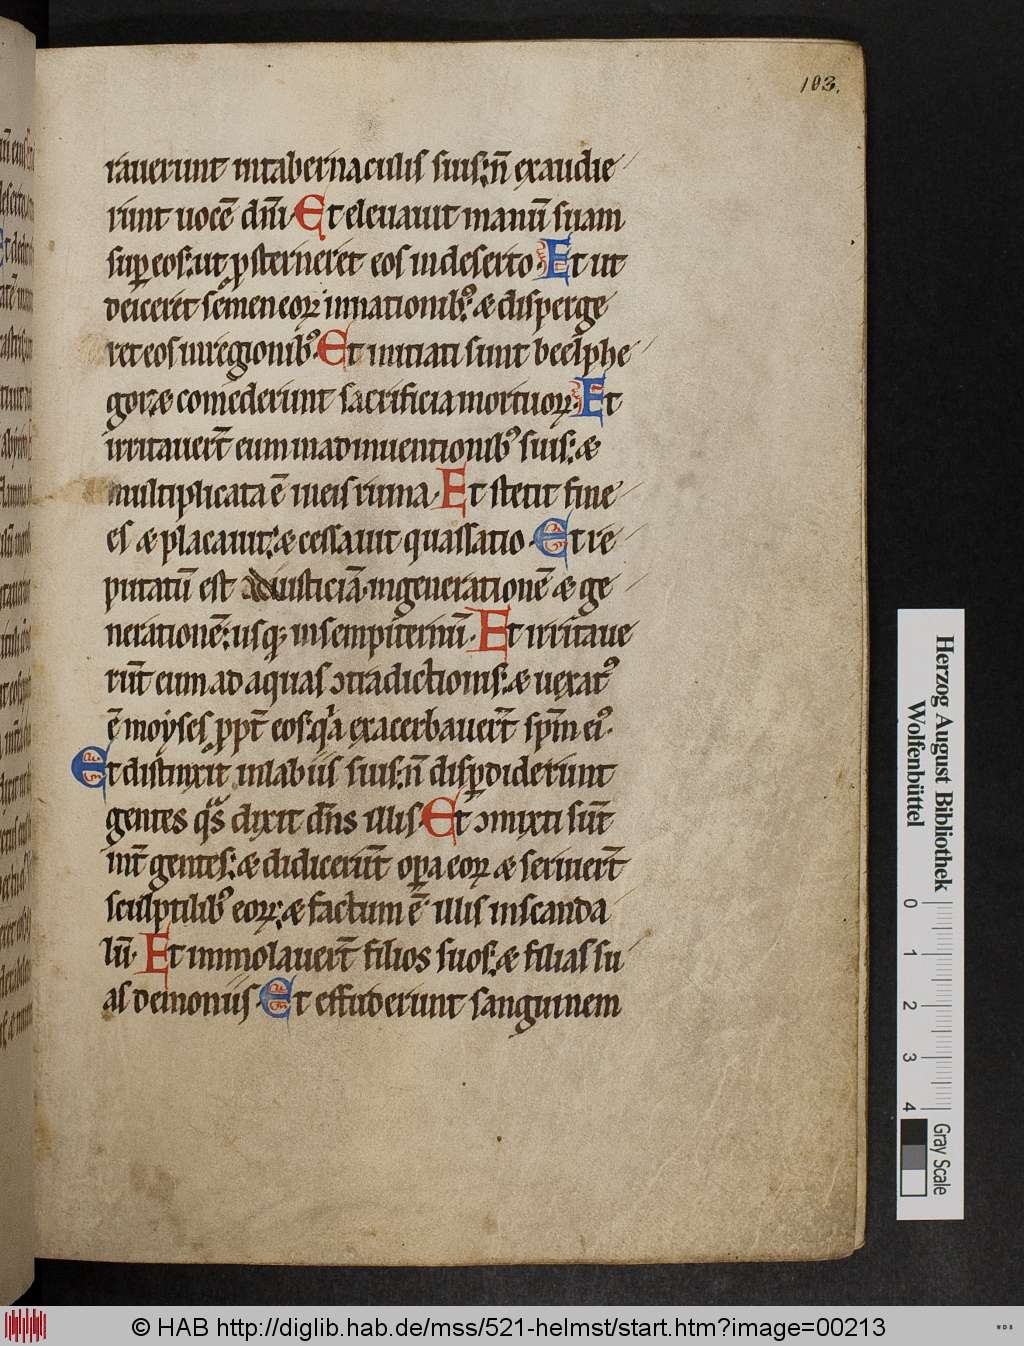 103.
rauerunt intabernaculis suis: n̄ exaudie
runt uocē dn̄i. Et eleuauit manū suam
sup eos: ut ꝓsterneret eos indeserto. Et ut
deiceret semen eoꝝ innationib᾽: & disperge
ret eos inregionib᾽. Et initiati sunt beelphe
gor: & comederunt sacrificia mortuoꝝ. Et
irritauert̄ eum inadinuentionib᾽ suis: &
multiplicata ē ineis ruina. Et stetit fine
es & placauit: & cessauit quassatio. Et re
putatū est iusticiā. ingenerationē & ge
nerationē: usqꝫ insempiternū. Et irritaue
rūt eum ad aquas ↄtradictionis: & uexat᾽
ē moyses ꝓpt̄ eos: qͣa exacerbauert̄ spm̄ ei᾽.
Et distinxit inlabiis suis: n̄ disꝑdiderunt
gentes qͣs dixit dn̄s illis. Et ↄmixti sūt
int̄ gentes: & didicerūt oꝑa eoꝝ & seruiert̄
sculptilib᾽ eoꝝ: & factum ē illis inscanda
lū. Et immolauert̄ filios suos: & filias su
as demoniis. Et effuderunt sanguinem
Herzog August Bibliothek
Wolfenbüttel
0 1 2 3 4
Gray Scale
© HAB http://diglib.hab.de/mss/521-helmst/start.htm?image=00213